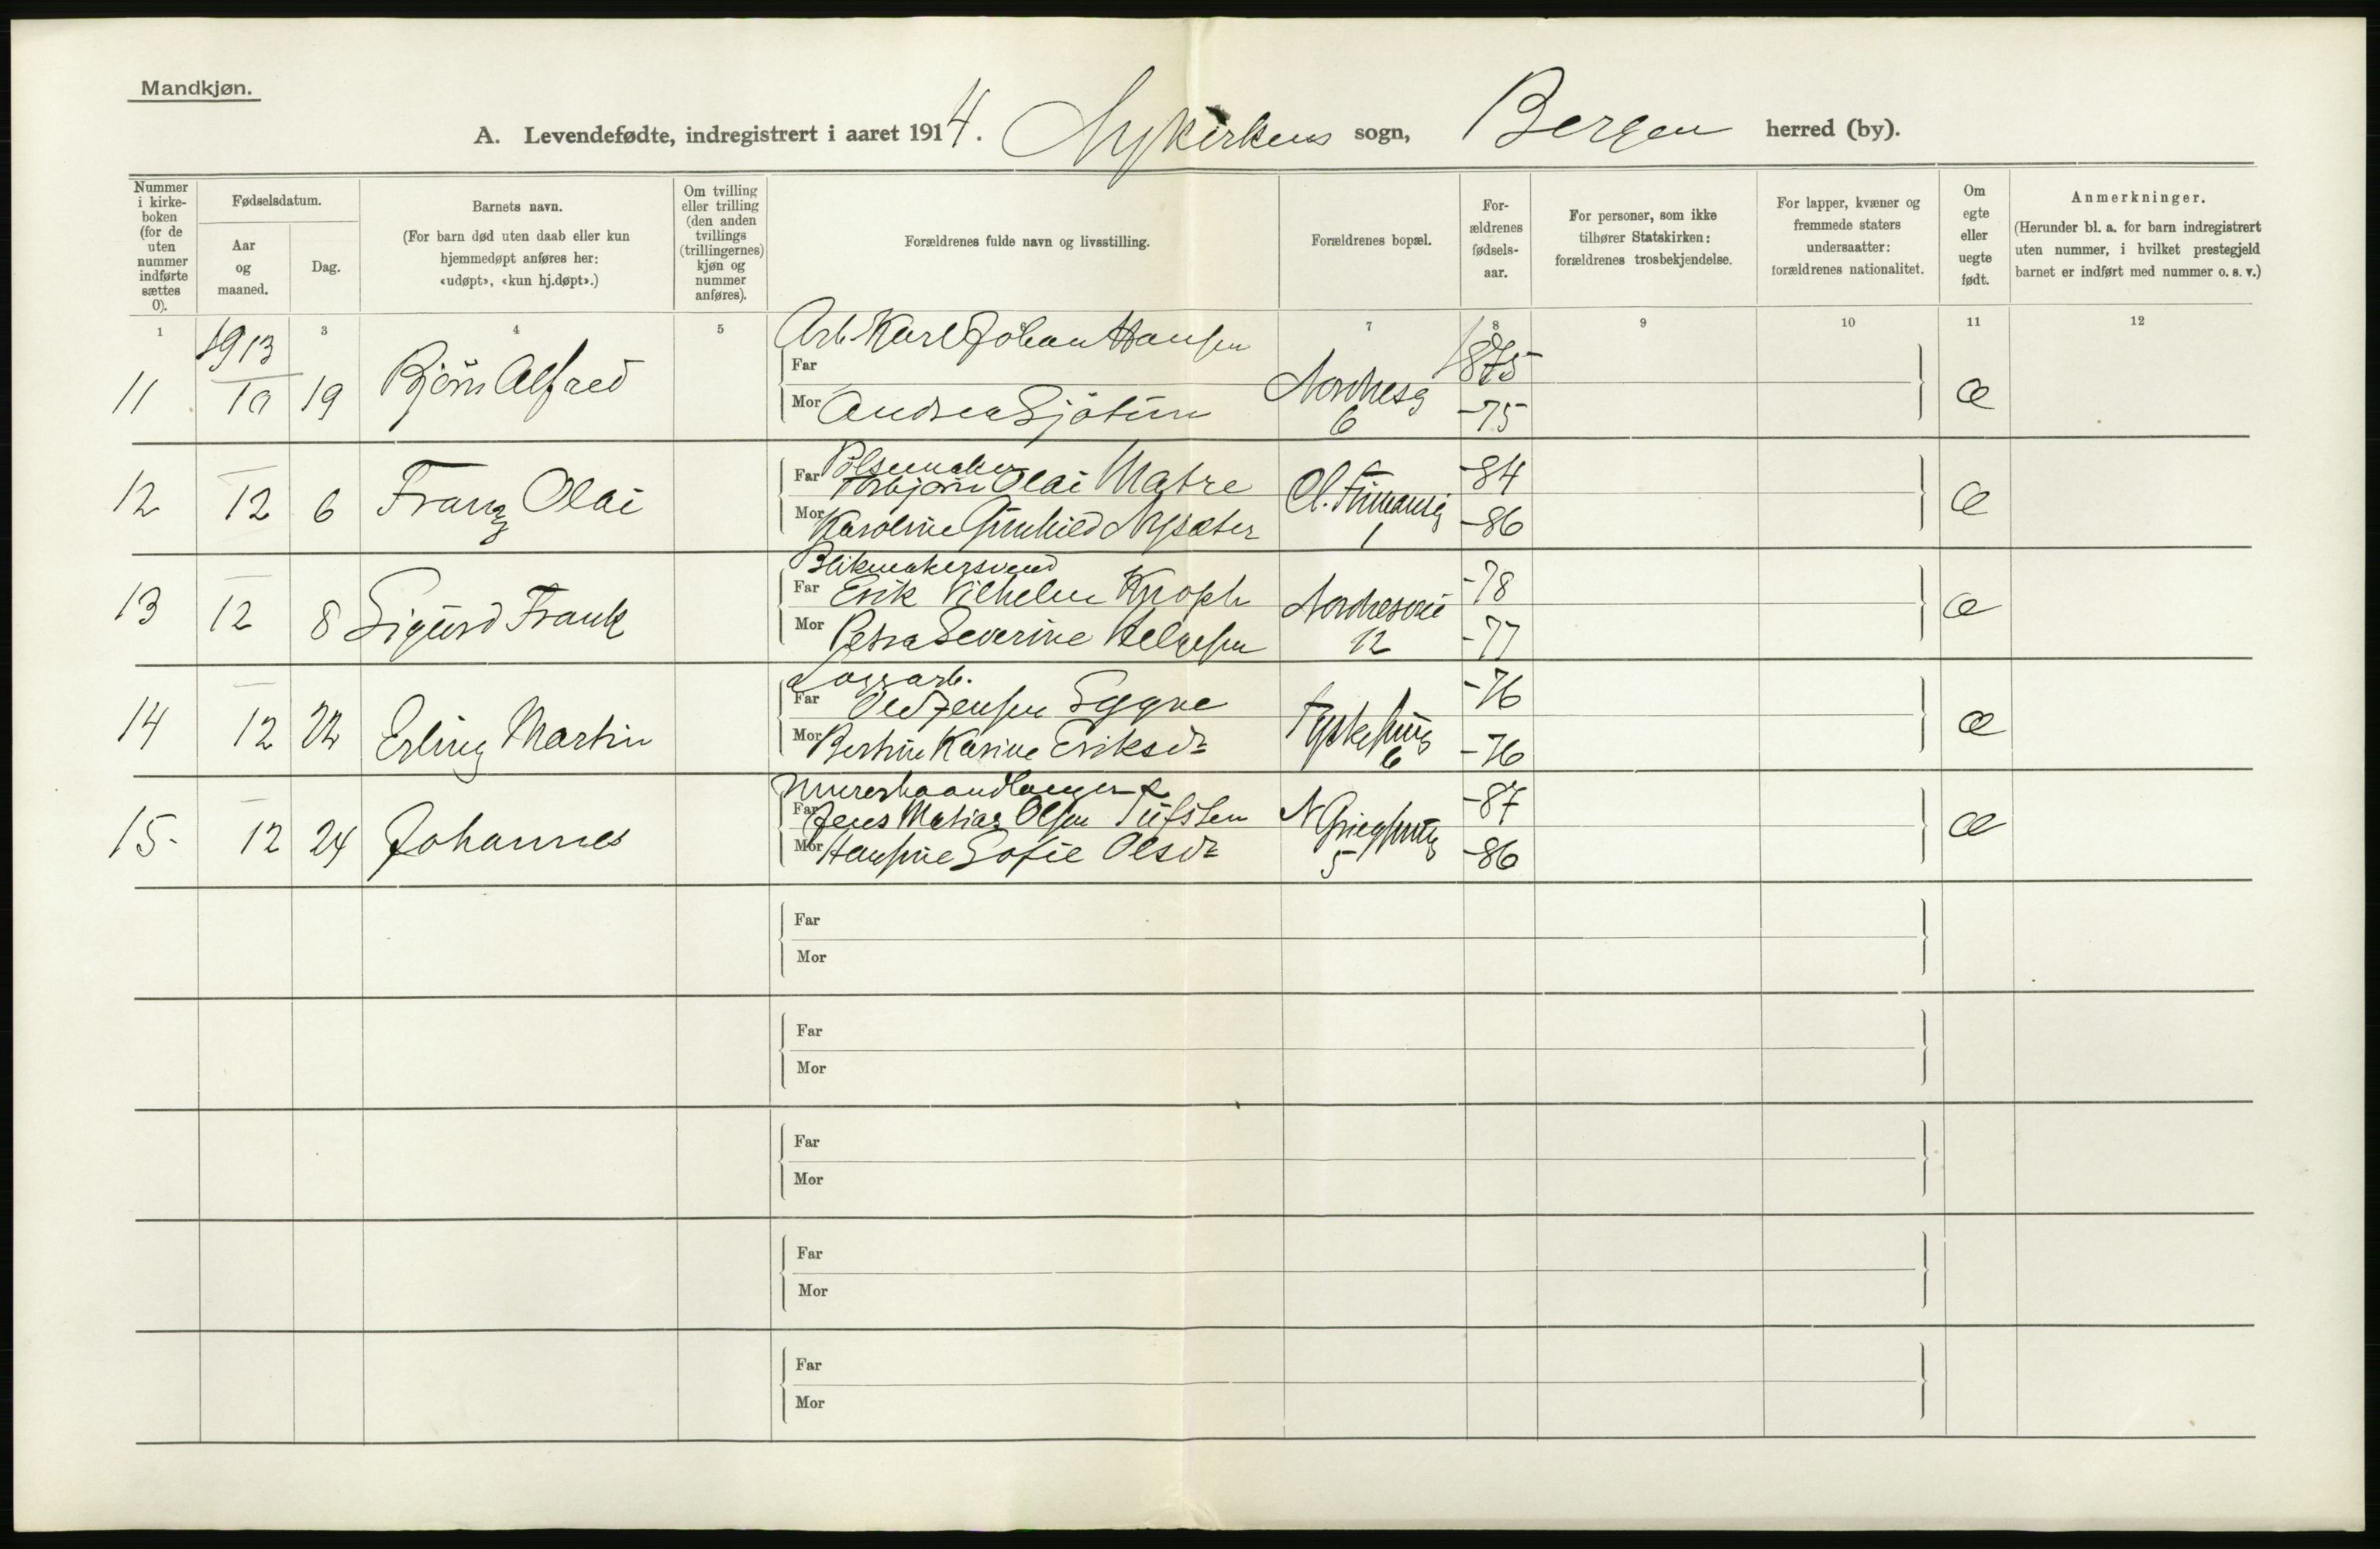 Mandkjøn.
A. Levendefødte, indregistrert i aaret 1914. Nykirkens sogn, Bergen herred (by).
Nummer i kirke-boken (for de uten nummer indførte sættes 0).
Fødselsdatum.
Aar og maaned.
Dag.
Barnets navn.
(For barn død uten daab eller kun hjemmedøpt anføres her: «udøpt», «kun hj.døpt».)
Om tvilling eller trilling (den anden tvillings (trillingernes) kjøn og nummer anføres).
Forældrenes fulde navn og livsstilling.
Forældrenes bopæl.
For-ældrenes fødsels-aar.
For personer, som ikke tilhører Statskirken: forældrenes trosbekjendelse.
For lapper, kvæner og fremmede staters undersaatter: forældrenes nationalitet.
Om egte eller uegte født.
Anmerkninger.
(Herunder bl. a. for barn indregistrert uten nummer, i hvilket prestegjeld barnet er indført med nummer o. s. v.)
1 3 4 5 7 8 9 10 11 12
1913
11 10 19 Bjørn Alfred
Arb. Karl Johan Hansen
Far
Mor Andrea Sjøtun
Nordnesg 6
1875
-75
Æ
12 12 6 Franz Olai
Pølsemaker
Far Torbjørn Olai Matre
Mor Karoline Gunhild Nysæter
Cl. 1
-84
-86
Æ
13 12 8 Sigurd Frank
Blikmakersvend
Far Erik Vilhelm Kroph
Mor Petra Severine Helgesen
Nordnesvei 12
-78
-77
Æ
14 12 22 Erling Martin
Far Ole Jensen Sygne
Mor Bertine Karine Eriksdr
6
-76
-76
Æ
15. 12 24 Johannes
Murerhaandlanger
Far Jens Matias Olsen Tufsten
Mor Hansine Sofie Olsdr
N Griegsmug 5
-87
-86
Æ
Far
Mor
Far
Mor
Far
Mor
Far
Mor
Far
Mor